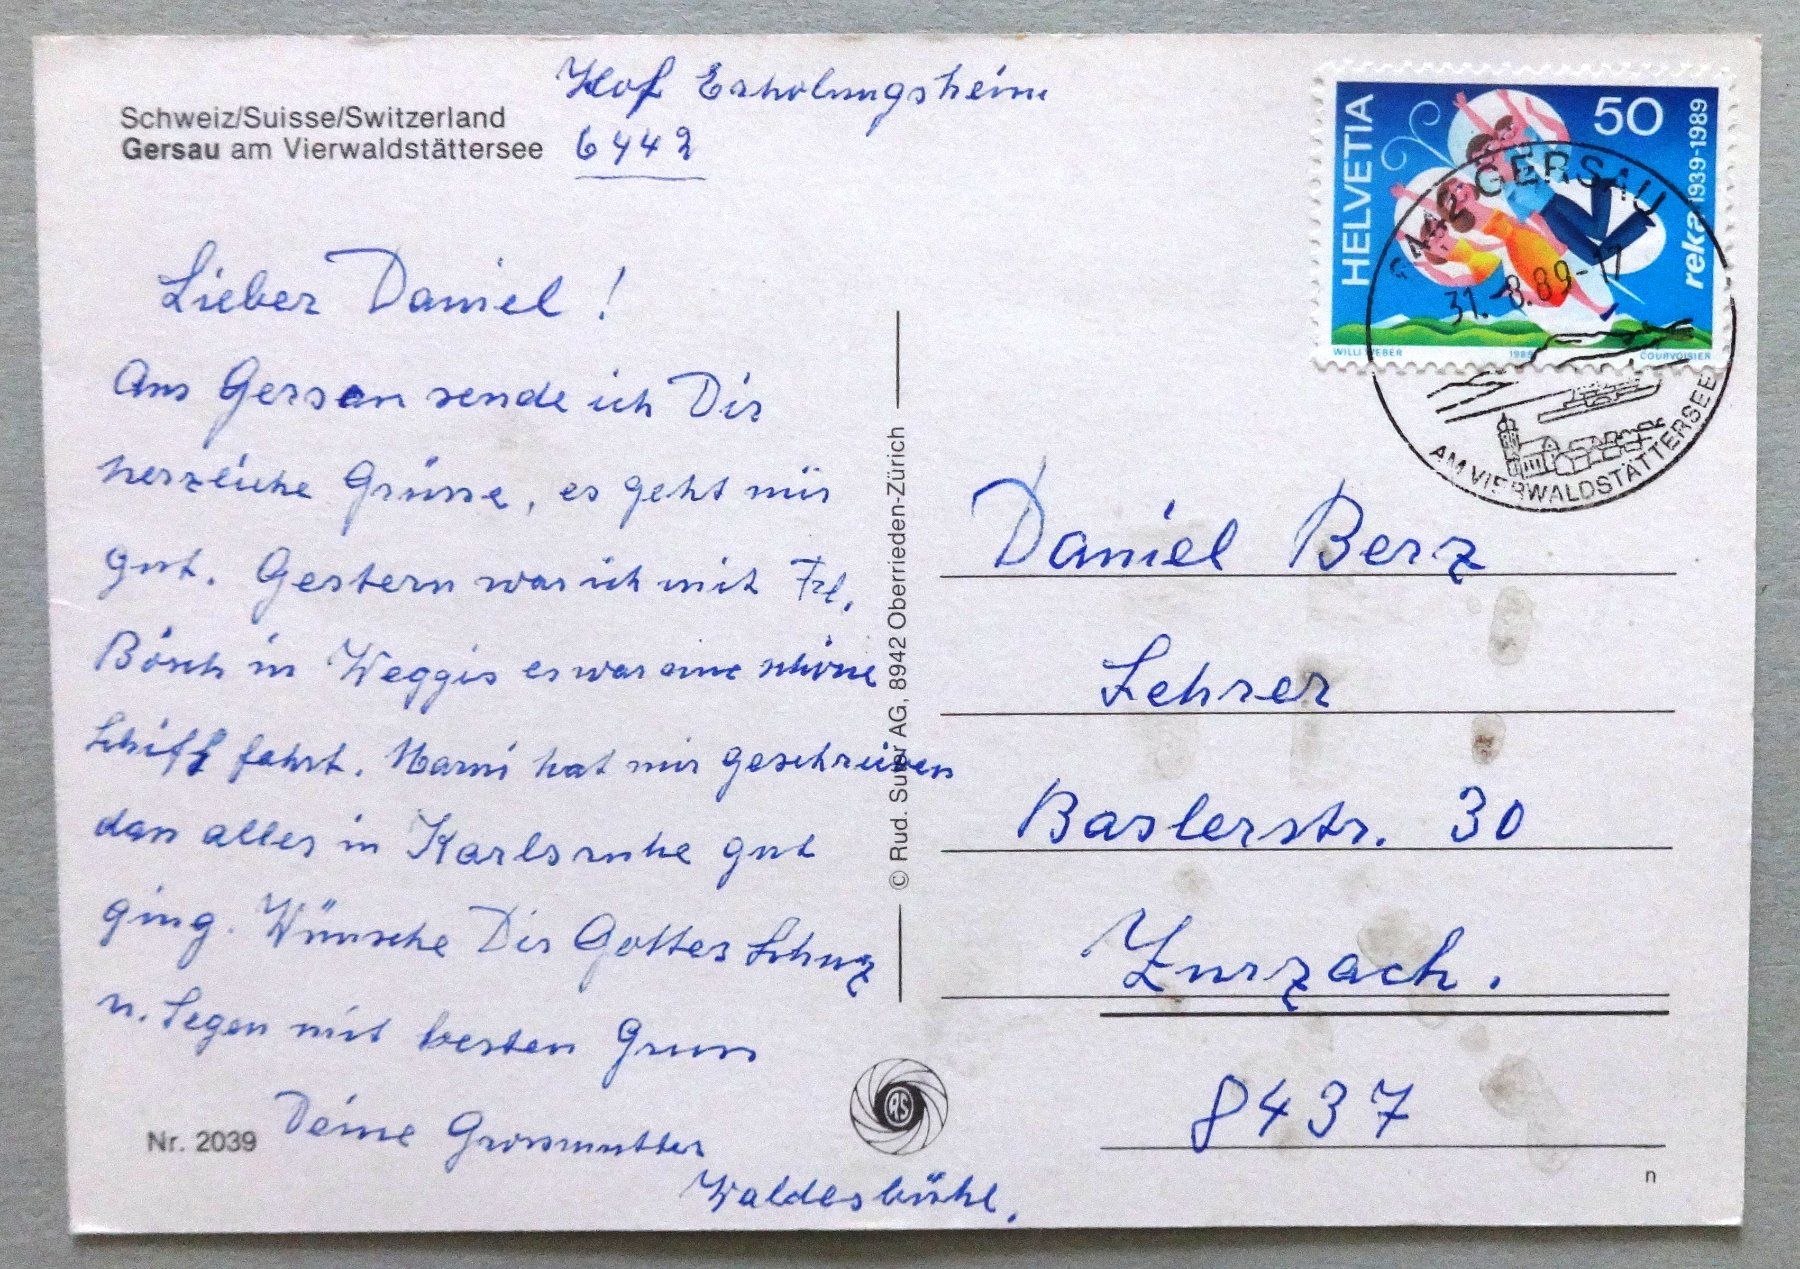 Hof Erholungsheim
Schweiz/Suisse/Switzerland
Gersau am Vierwaldstättersee
6442
Lieber Daniel!
Aus Gersau sende ich Dir
herzliche Grüsse, es geht mir
gut. Gestern war ich mit Frl.
Bösch in Weggis es war eine schöne
Schiff fahrt. Mami hat mir geschrieben
dass alles in Karlsruhe gut
ging. Wünsche Dir Gottes Schuz
u. Segen mit besten Gruss
Deine Grossmutter
Waldesbühl.
Nr. 2039
© Rud. Suter AG, 8942 Oberrieden-Zürich
RS
HELVETIA
50
reka 1939-1989
WILLI WEBER 1989 COURVOISIER
6442 GERSAU
31.-8.89-17
AM VIERWALDSTÄTTERSEE
Daniel Berz
Lehrer
Baslerstr. 30
Zurzach.
8437
n